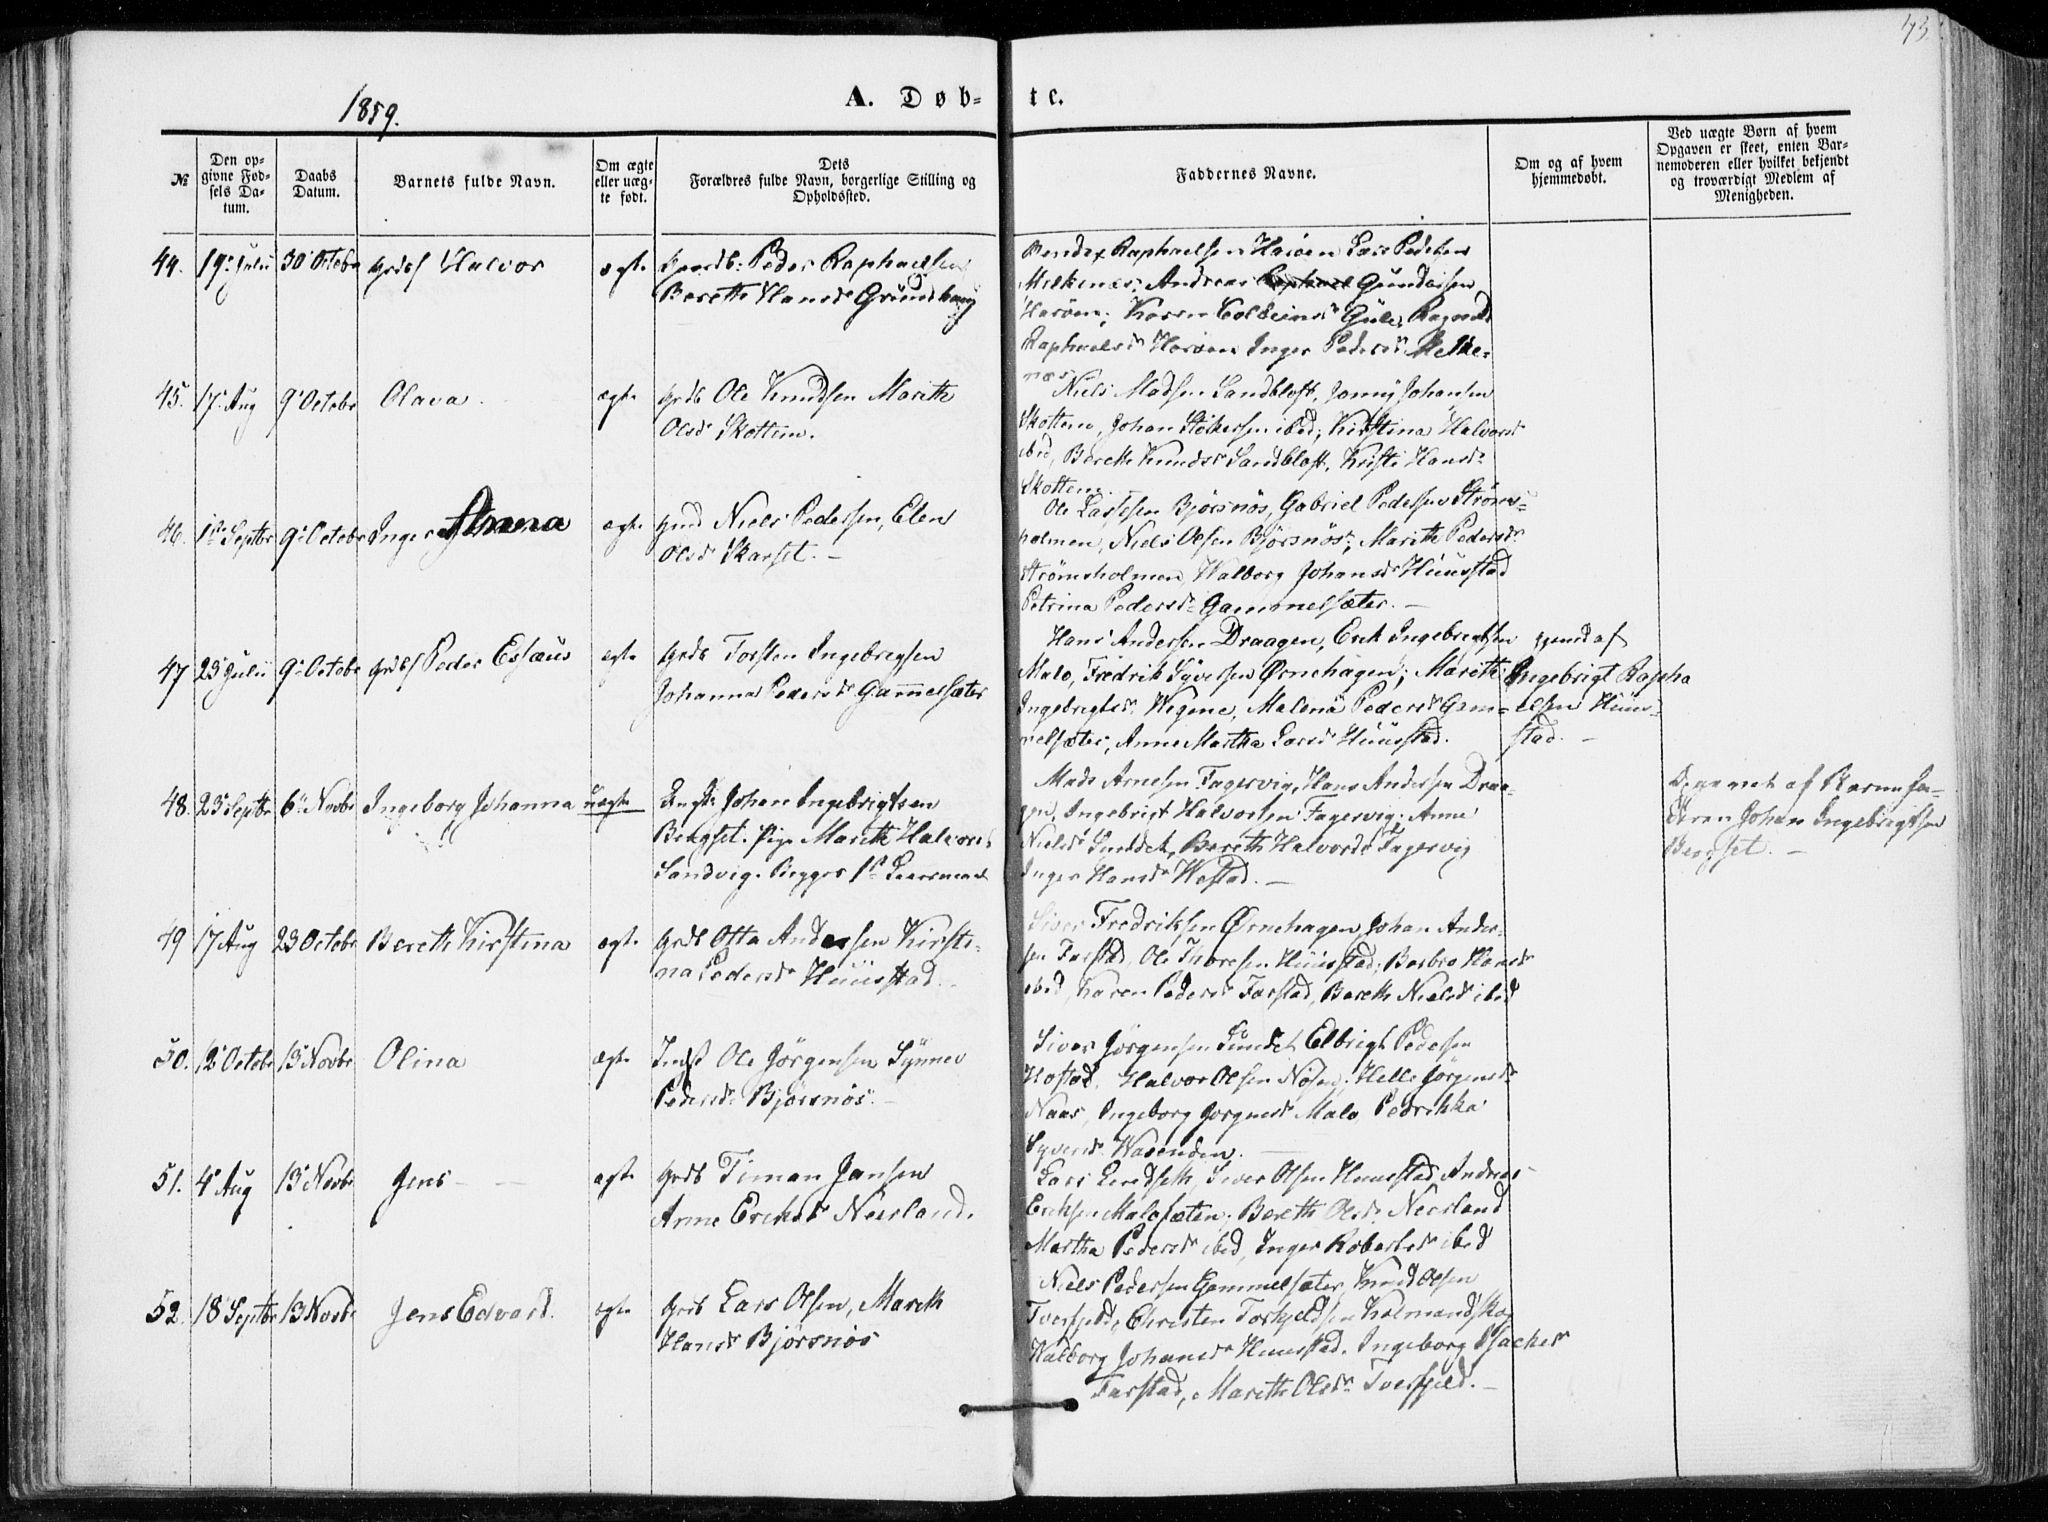 43
1859.
A. Døb-te.
№
Den op-
givne Fød-
sels Da-
tum.
Daabs
Datum.
Barnets fulde Navn.
Om ægte
eller uæg-
te født.
Dets
Forældres fulde Navn, borgerlige Stilling og
Opholdssted.
Faddernes Navne.
Om og af hvem
hjemmedøbt.
Ved uægte Børn af hvem
Opgaven er skeet, enten Bar-
nemoderen eller hvilket bekjendt
og troværdigt Medlem af
Menigheden.
44. 19de Julii 30 Octobr Halvor ægte
Peder Raphaelsen
Bereth Hansdr Grundhaug
Raphaelsen Harøen Lars Pedersen
Melkenæs; Andreas Gundersen
Harøen; Karen Gule, Ragnild
Raphaelsdr Harøen Inger Pedersdr Melke-
næs
45. 17 Aug 9 Octobr Olava ægte
Grdb Ole Knudsen Mareth
Olsdr Skottem.
Niels Madsen Sandblost, Jonny Johansen
Skottem, Johan ibid; Kirstina Halvorsdr
ibid, Bereth Knudsdr Sandblost, Kirsti Hansdr
Skottem.
46. 1ste Septbr 9 Octobr Inger Anna ægte
Niels Pedersen, Elen
Olsdr Skarset. —
Ole Larssen Bjørsnøs, Gabriel Pedersen Strøms-
holmen, Niels Olsen Bjørsnøs; Mareth Pedersdr
Strømsholmen Walborg Johansdr Huusstad
Petrina Pedersdr Gammelsæter. —
47 25 Julii 9 Octobr Peder Esseus ægte
Grdb Torsten Ingebregsen
Johanna Pedersdr Gammelsæter
Hans Andersen Draagen, Erik Ingebregtsen
Malo, Fredrik Syversen Ørnehagen; Mareth
Ingebregtsdr Wegene, Malena Pedersdr Gam-
melsæter, Anne Martha Larsdr Huusstad.
hjemd af
Ingebrigt Rapha
elsen Huus-
stad. —
48. 23 Septbr 6 Novbr Ingeborg Johanna uægte
Ungk Johan Ingebrigtsen
Bergset. Pige Mareth Halvorsd
Sandvig.
Mads Arnesen Fagervig, Hans Andersen Draa-
gen, Ingebrigt Halvorsen Fagervig; Anne
Nielsdr Sundet, Bereth Halvorsdr Fagervig
Inger Hansdr Hostad. —
af Barnefa-
deren Johan Ingebrigtsen
Bergset. —
49 17 Aug 23 Octobr Bereth Kirstina ægte
Grdb Otto Andersen Kirsti-
na Pedersdr Huusstad.
Siver Fredriksen Ørnehagen, Johan Ander-
sen Farstad, Ole Thoresen Huusstad; Barbro Hansdr
ibid, Karen Pedersdr Farstad, Bereth Nielsdr ibid
50. 12 Octobr 13 Novbr Olina ægte
Indst Ole Jørgensen Synnev
Pedersdr Bjørsnøs. —
Siver Jørgensen Sundet Elbrigt Pedersen
Hostad, Halvor Olsen Nøsen; Helle Jørgensdr
Naas, Ingeborg Jørgensdr Malo, Pedrikka
Syversdr Wasenden. —
51. 4 Aug 13 Novbr Jens — — ægte
Grdb Timan Jansen
Anne Eriksdr Neerland.
Lars Siver Olsen Huusstad, Andreas
Eriksen Malosæten; Bereth Olsdr Neerland
Martha Pedersdr ibid, Inger Robertsdr ibid
52. 18 Septbr 13 Novbr Jens Edvard. ægte
Grdb Lars Olsen, Mareth
Hansdr Bjørsnøs
Niels Pedersen Gammelsæter, Knud Olsen
Tverfjeld, Christen Torkjeldsen Kolmandskog
Walborg Johansdr Huusstad. Ingeborg Isachsdr
Farstad, Mareth Olsdr Tverfjeld. —